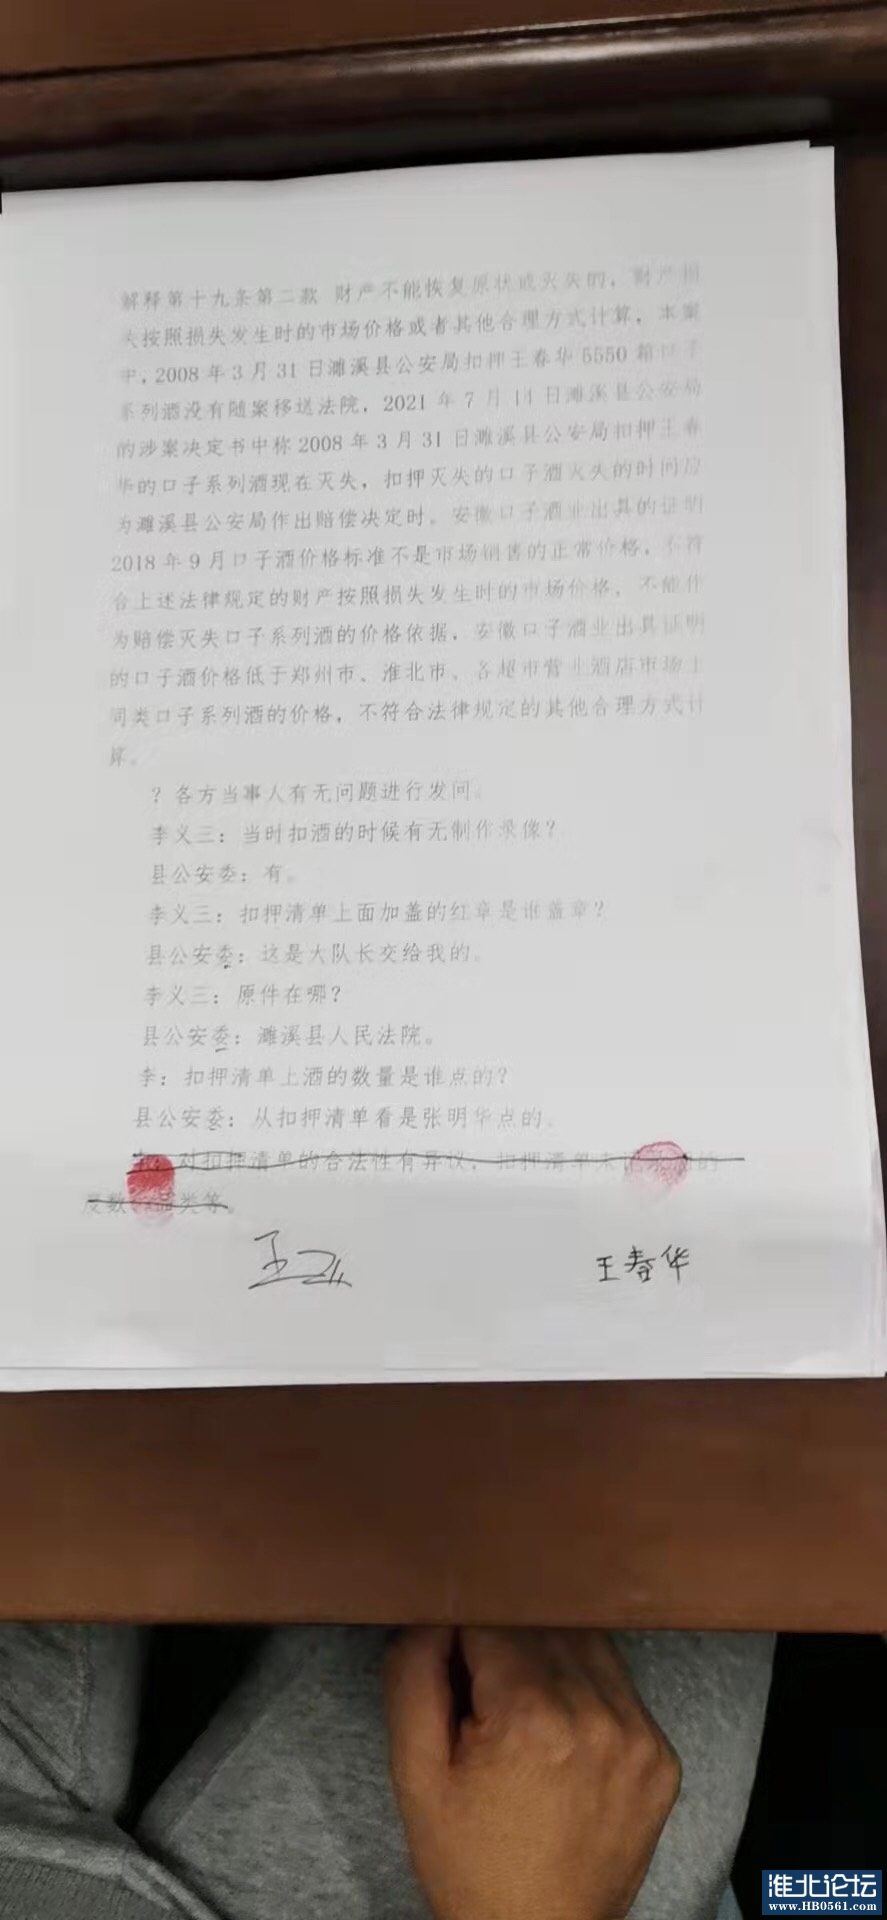 解释第十九条第二款 财产不能恢复原状或灭失的，财产损
失按照损失发生时的市场价格或者其他合理方式计算，本案
中，2008年3月31日濉溪县公安局扣押王春华5550箱口子
系列酒没有随案移送法院，2021年7月14日濉溪县公安局
的涉案决定书中称2008年3月31日濉溪县公安局扣押王春
华的口子系列酒现在灭失，扣押灭失的口子酒灭失的时间应
为濉溪县公安局作出赔偿决定时。安徽口子酒业出具的证明
2018年9月口子酒价格标准不是市场销售的正常价格，不符
合上述法律规定的财产按照损失发生时的市场价格，不能作
为赔偿灭失口子系列酒的价格依据，安徽口子酒业出具证明
的口子酒价格低于郑州市、淮北市、各超市营业酒店市场上
同类口子系列酒的价格，不符合法律规定的其他合理方式计
算。
？各方当事人有无问题进行发问。
李义三：当时扣酒的时候有无制作录像？
县公安委：有。
李义三：扣押清单上面加盖的红章是谁盖章？
县公安委：这是大队长交给我的。
李义三：原件在哪？
县公安委：濉溪县人民法院。
李：扣押清单上酒的数量是谁点的？
县公安委：从扣押清单看是张明华点的。
对扣押清单的合法性有异议，扣押清单未记录酒的
度数 种类等。
王春华
淮北论坛
www.HB0561.com